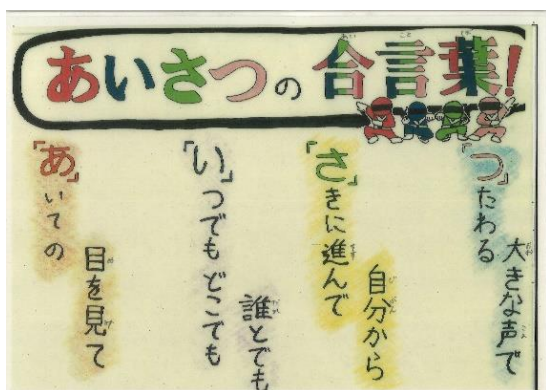 あいさつの合言葉!
「あ」いての
目を見て
「い」つでもどこでも
誰とでも
「さ」きに進んで
自分から
「つ」たわる
大きな声で